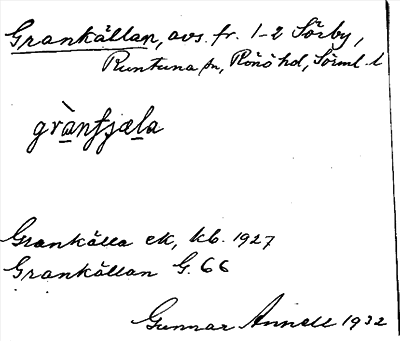 Grankällan, avs. fr. 1-2 Sörby,
Runtuna sn, Rönö hd, Sörml. l
grànfjæla
Grankälla ek, kb. 1927
Grankällan G. 66
Gunnar Annell 1932